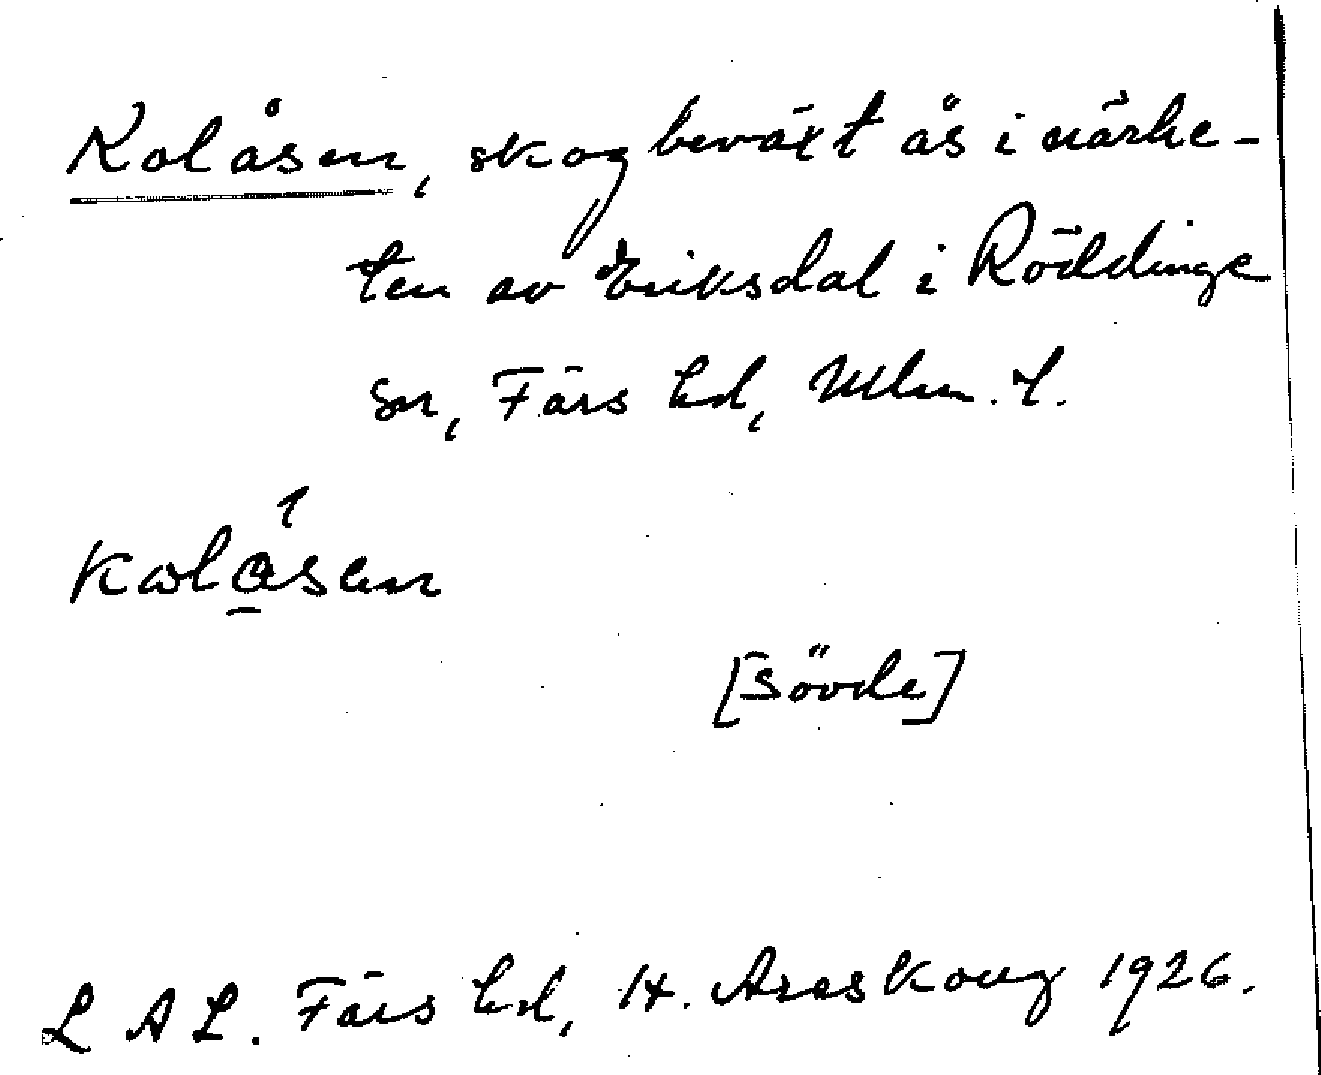 Kolåsen, skogbeväxt ås i närhe-
ten av Eriksdal i Röddinge
sn, Färs hd, Mlm. l.
[Sövde]
L A L. Färs hd, H. Areskoug 1926.